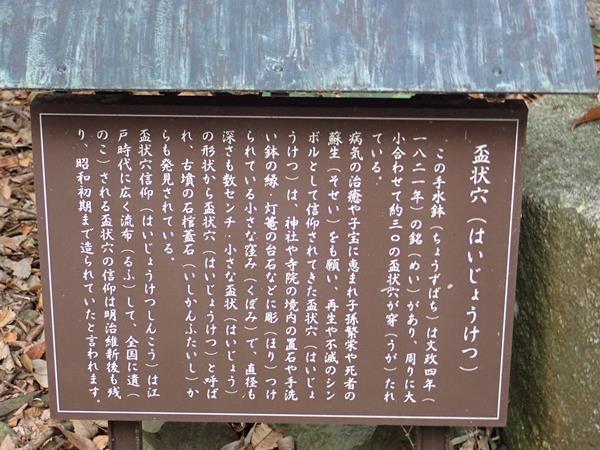 盃状穴（はいじょうけつ）
この手水鉢（ちょうずばち）は文政四年（
一八二一年）の銘（めい）があり、周りに大
小合わせて約三〇の盃状穴が穿（うが）たれ
ている。
病気の治癒や子宝に恵まれ子孫繁栄や死者の
蘇生（そせい）をも願い、再生や不滅のシン
ボルとして信仰されてきた盃状穴（はいじょ
うけつ）は、神社や寺院の境内の置石や手洗
い鉢の縁、灯篭の台石などに彫（ほり）つけ
られている小さな窪み（くぼみ）で、直径も
深さも数センチ、小さな盃状（はいじょう）
の形状から盃状穴（はいじょうけつ）と呼ば
れ、古墳の石棺蓋石（いしかんふたいし）か
らも発見されている。
盃状穴信仰（はいじょうけつしんこう）は江
戸時代に広く流布（るふ）して、全国に遺（
のこ）される盃状穴の信仰は明治維新後も残
り、昭和初期まで造られていたと言われます。